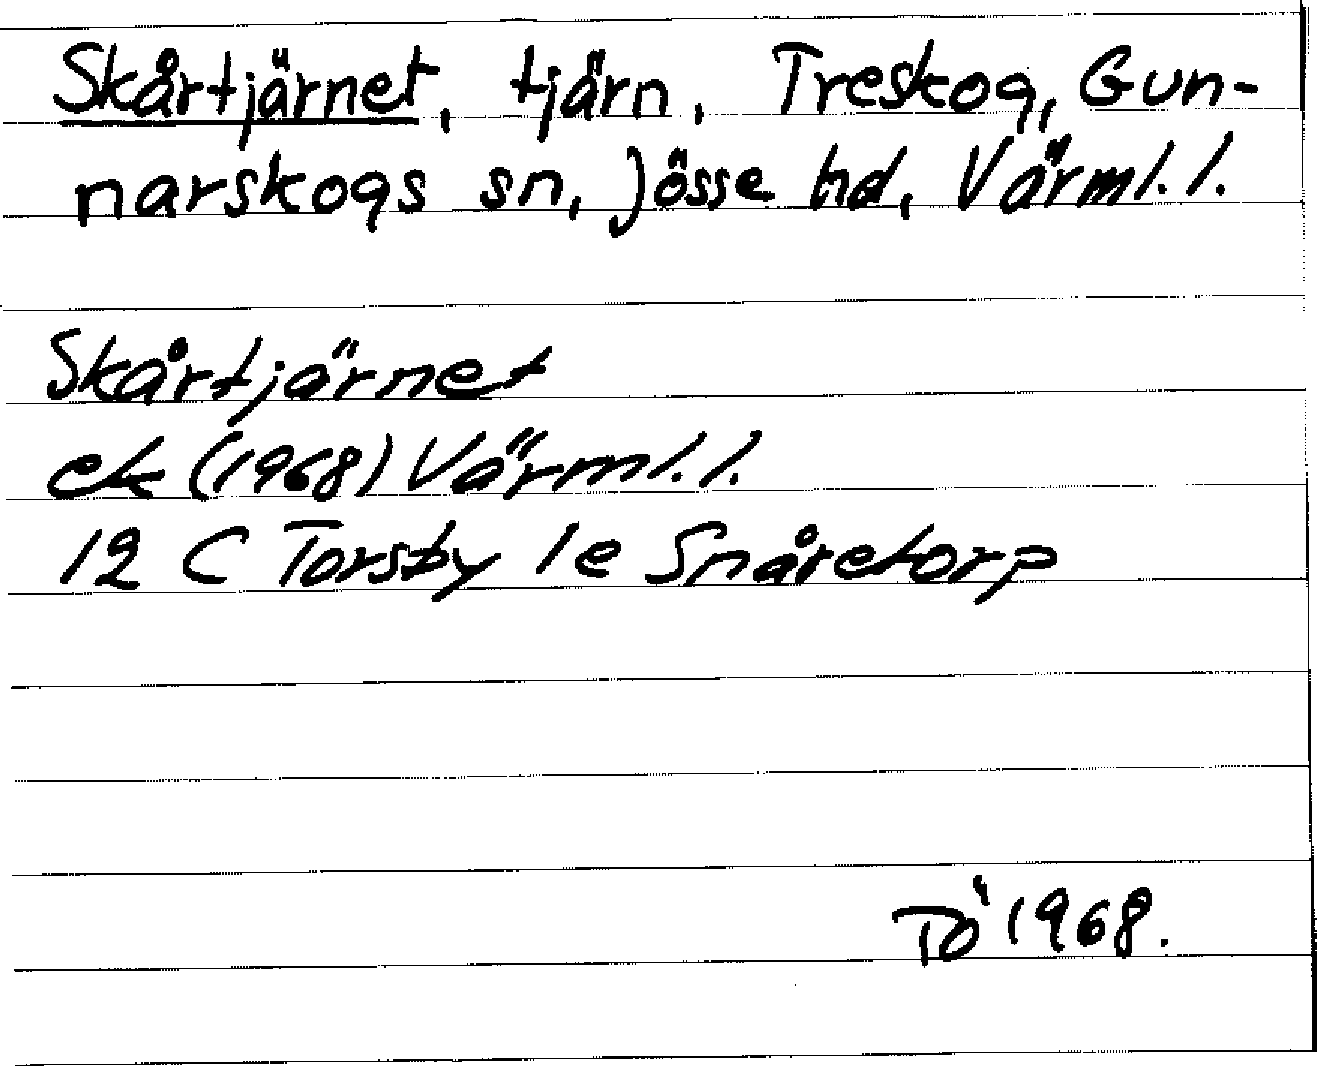 Skårtjärnet, tjärn, Treskog, Gun-
narskogs sn, Jösse hd, Värml. l.
Skårtjärnet
ek (1968) Värml. l.
12 C Torsby 1e Snåretorp
1968.